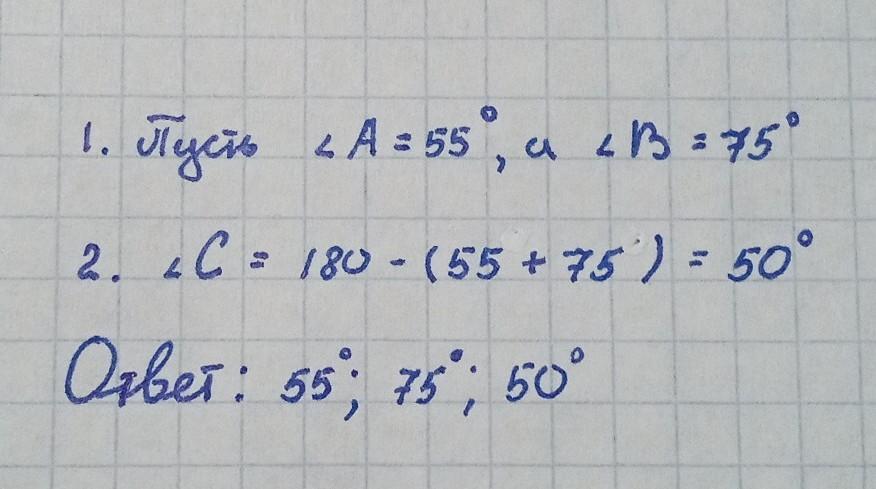 1. Пусть ∠A = 55°, а ∠B = 75°
2. ∠C = 180 - (55 + 75) = 50°
Ответ: 55°; 75°; 50°